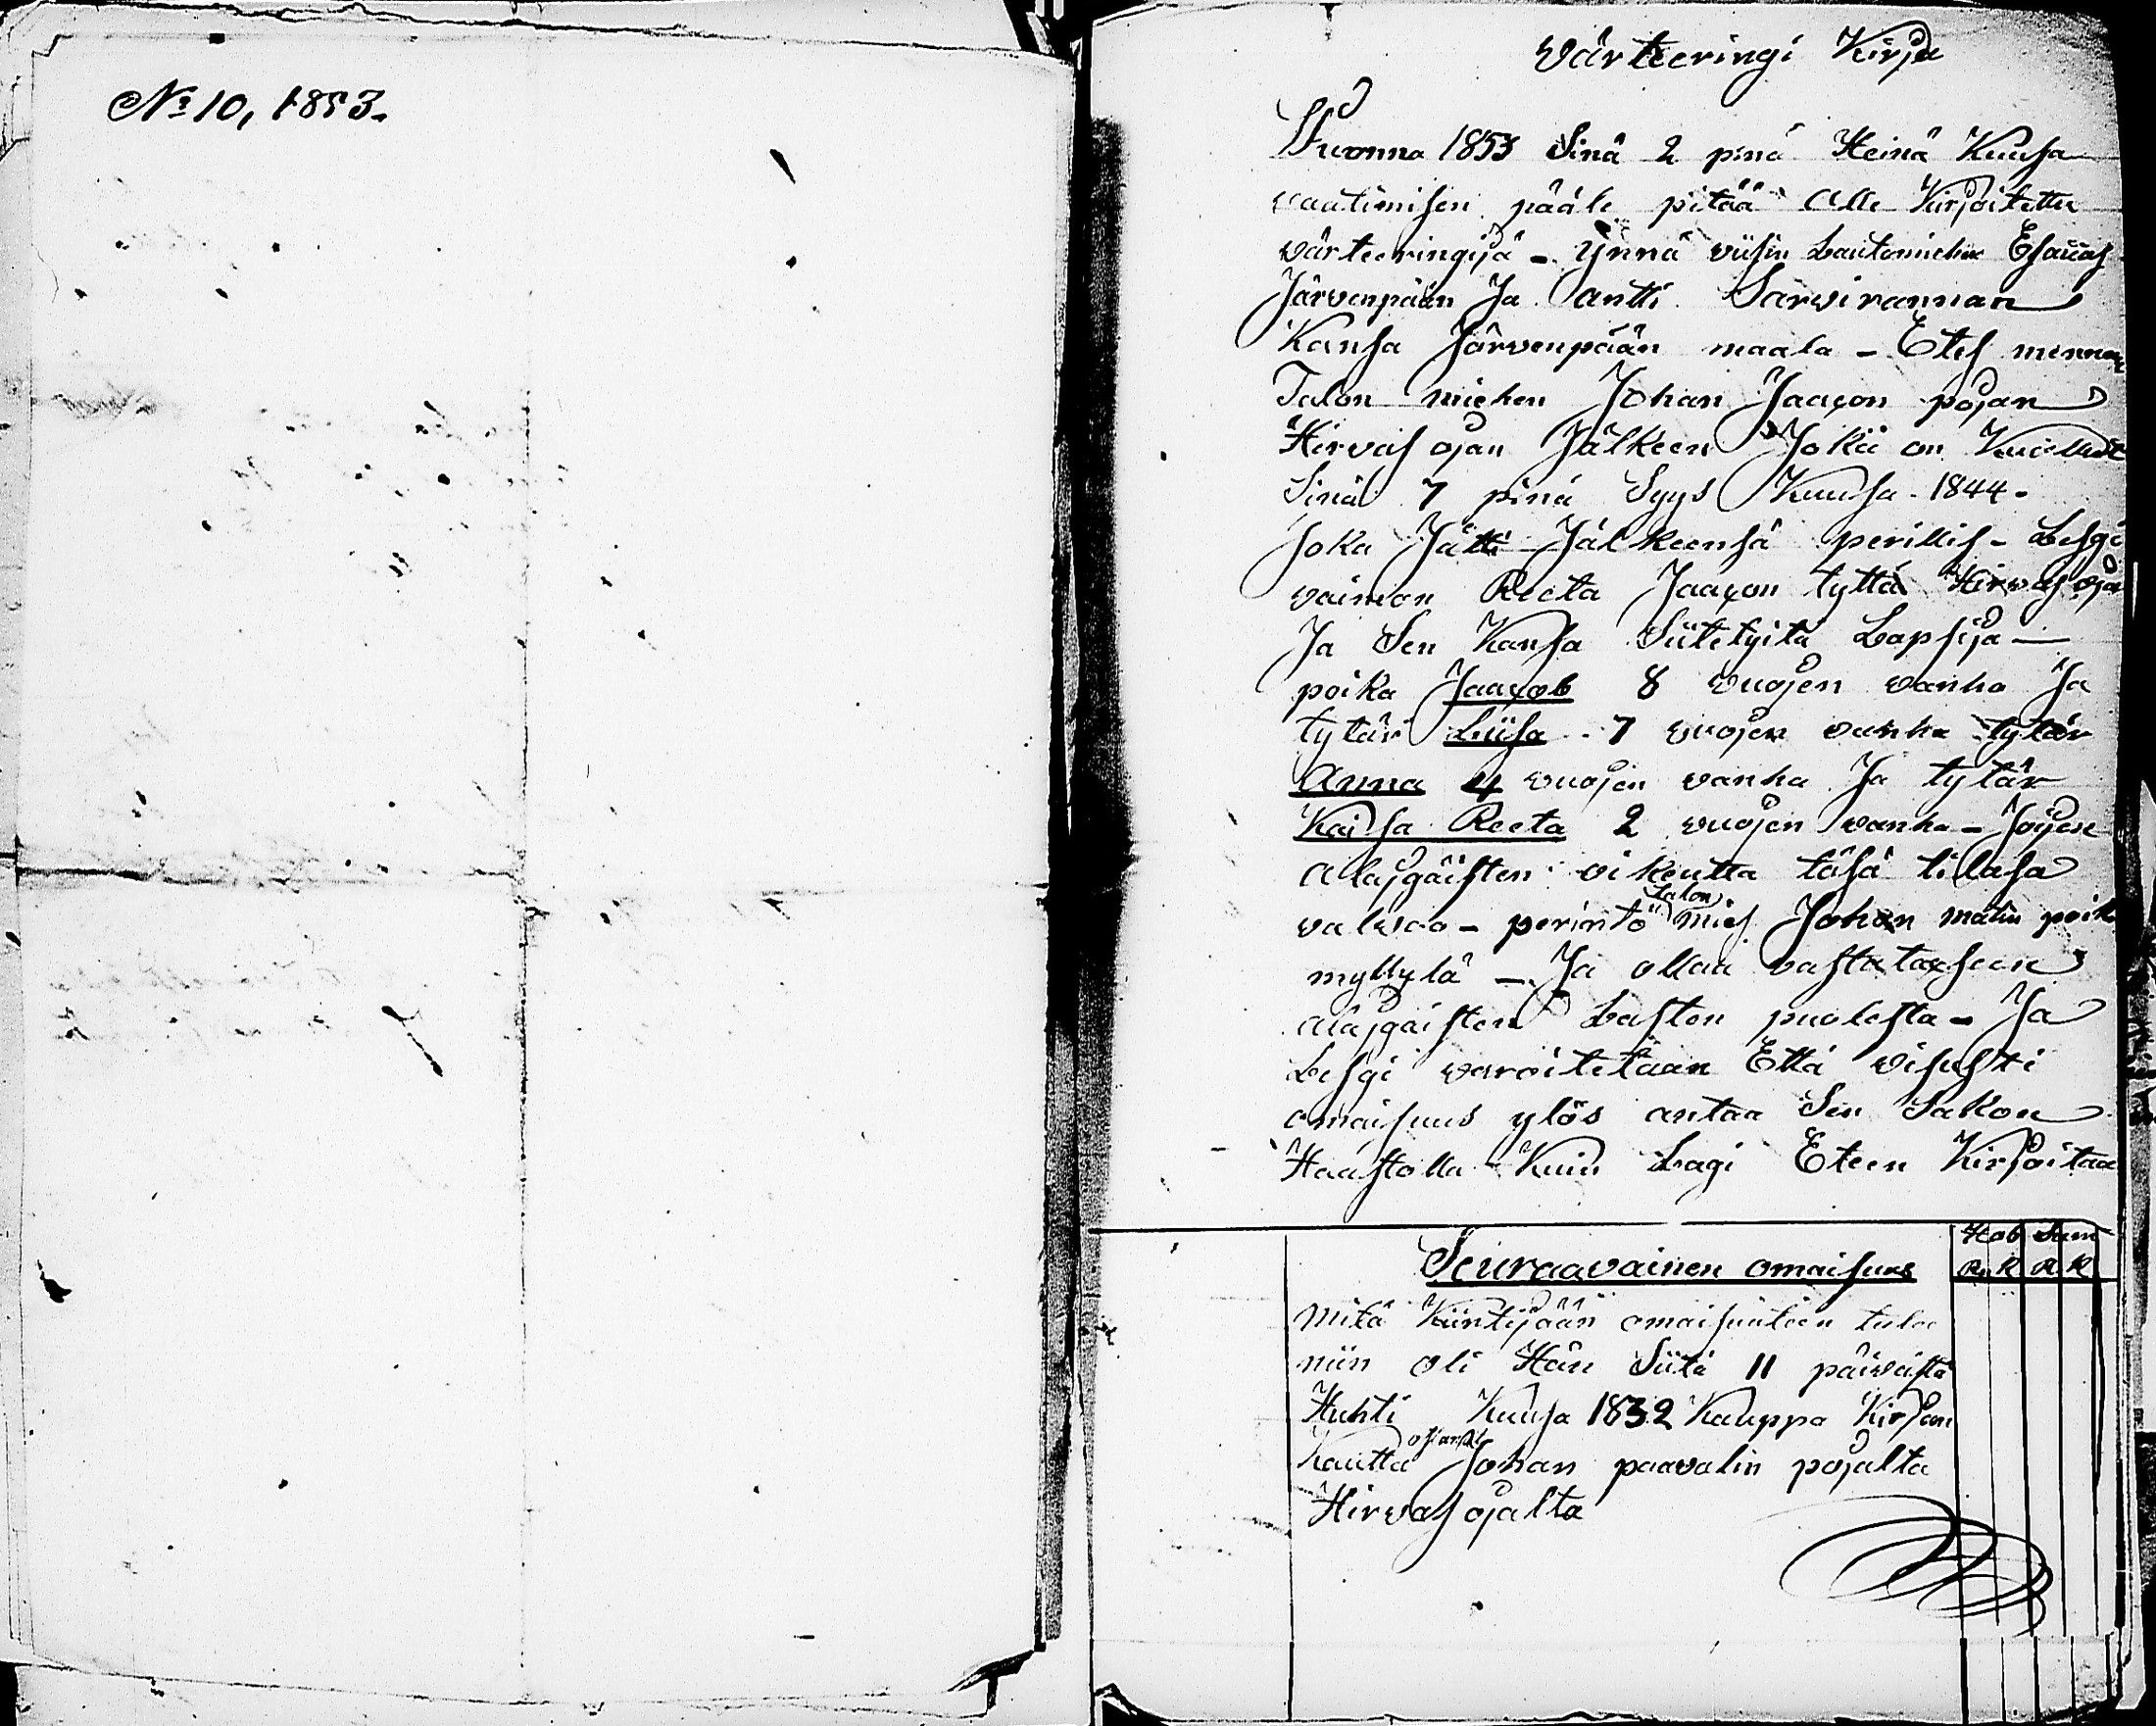 No 10, 1853.
Wärteeringi Kirja
Wuonna 1853 Sinä 2 pnä Heinä Kuusa
vaatimisen pääle pitää Alle Kirjoitettu
wärteeringijä - Ynnä viisin Lautamiehen Esaias
Järvenpään Ja antti Sarvirannan
Kansa Järvenpään maala - Etes mennen
Talon miehen Johan Jaacon pojan
Hirvas ojan Jälkeen Joka on Kuollut
Sinä 7 pinä Syys Kuusa 1844.
Joka Jätti Jälkeensä perillis - Lesgi
vaimon Reeta Jaacon tyttä Hirvas oja
Ja Sen Kansa Siitetyitä Lapsija -
poika Jaacob 8 vuojen vanha Ja
tytär Liisa 7 vuojen vanha tytär
Anna 4 vuojen vanha Ja tytär
Kaisa Reeta 2 vuojen vanha - Jojen
Alajgäisten oikeutta täsä tilasa
Talon
valvoo - perintö mies Johan matin poika
myllylä - Ja ollaa vastataxseen
alajgäisten Lasten puolesta - Ja
Lesgi varoitetaan Että visusti
omaisuus ylös antaa Sen Sakon
Haastolla Kuin Lagi Eteen Kirjoitaa
Hob Sum
Seuraavainen omaisuus R K R K
mitä Kiintijään omaisuuteen tulee
niin oli Hän Siitä 11 päivästä
Huhti Kuusa 1832 Kauppa Kirjan
ostanut
kautta Johan paavalin pojalta
Hirvas ojalta